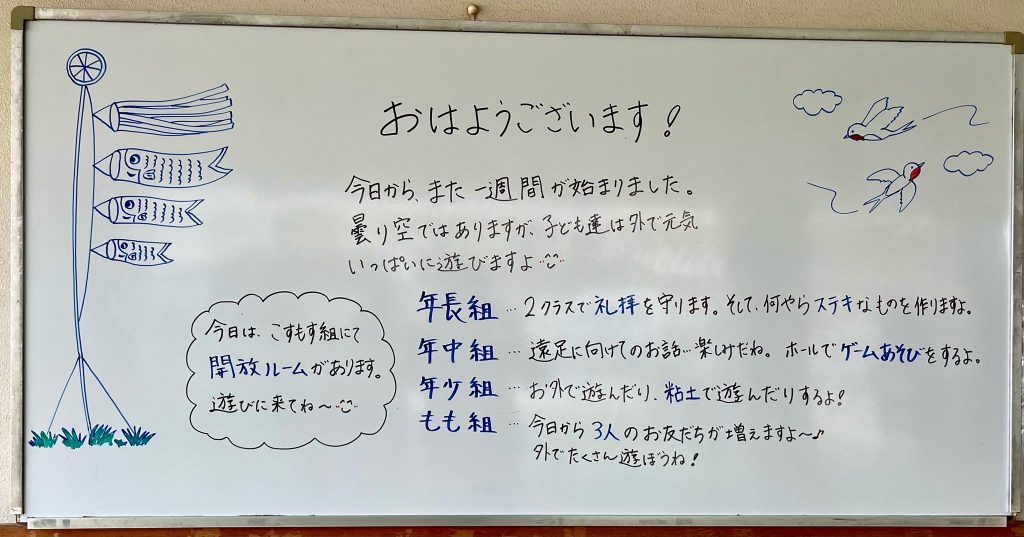 おはようございます!
今日から、また一週間が始まりました。
曇り空ではありますが、子ども達は外で元気
いっぱいに遊びますよ
年長組…2クラスで礼拝を守ります。そして、何やらステキなものを作りますよ。
年中組…遠足に向けてのお話…楽しみだね。ホールでゲームあそびをするよ。
年少組…お外で遊んだり、粘土で遊んだりするよ!
もも組…今日から3人のお友だちが増えますよ〜♪
外でたくさん遊ぼうね!
今日は、こすもす組にて
開放ルームがあります。
遊びに来てね〜